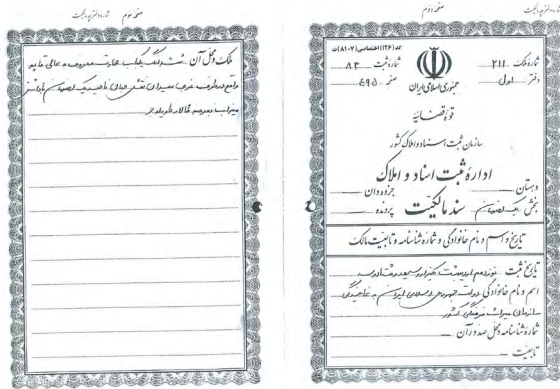 صفحه دوم
شماره ملک ۲۱۱
شماره ثبت ۸۳
دفتر اول
صفحه ۴۹۵
جمهوری اسلامی ایران
قوه قضائیه
سازمان ثبت اسناد و املاک کشور
اداره ثبت اسناد و املاک
دهستان
جزوه دان
بخش یک اصفهان
سند مالکیت
پرونده
تاریخ و اسم و نام خانوادگی و شماره شناسنامه و تابعیت مالک
تاریخ ثبت نوزدهم اردیبهشت یکهزار و سیصد و هشتاد و سه
اسم و نام خانوادگی دولت جمهوری اسلامی ایران به نمایندگی
سازمان میراث فرهنگی کشور
شماره شناسنامه و محل صدور آن
تابعیت
صفحه سوم
ملک و محل آن ششدانگ یکباب عمارت معروف به عالی قاپو
واقع در طرف غرب میدان نقش جهان ناحیه یک اصفهان